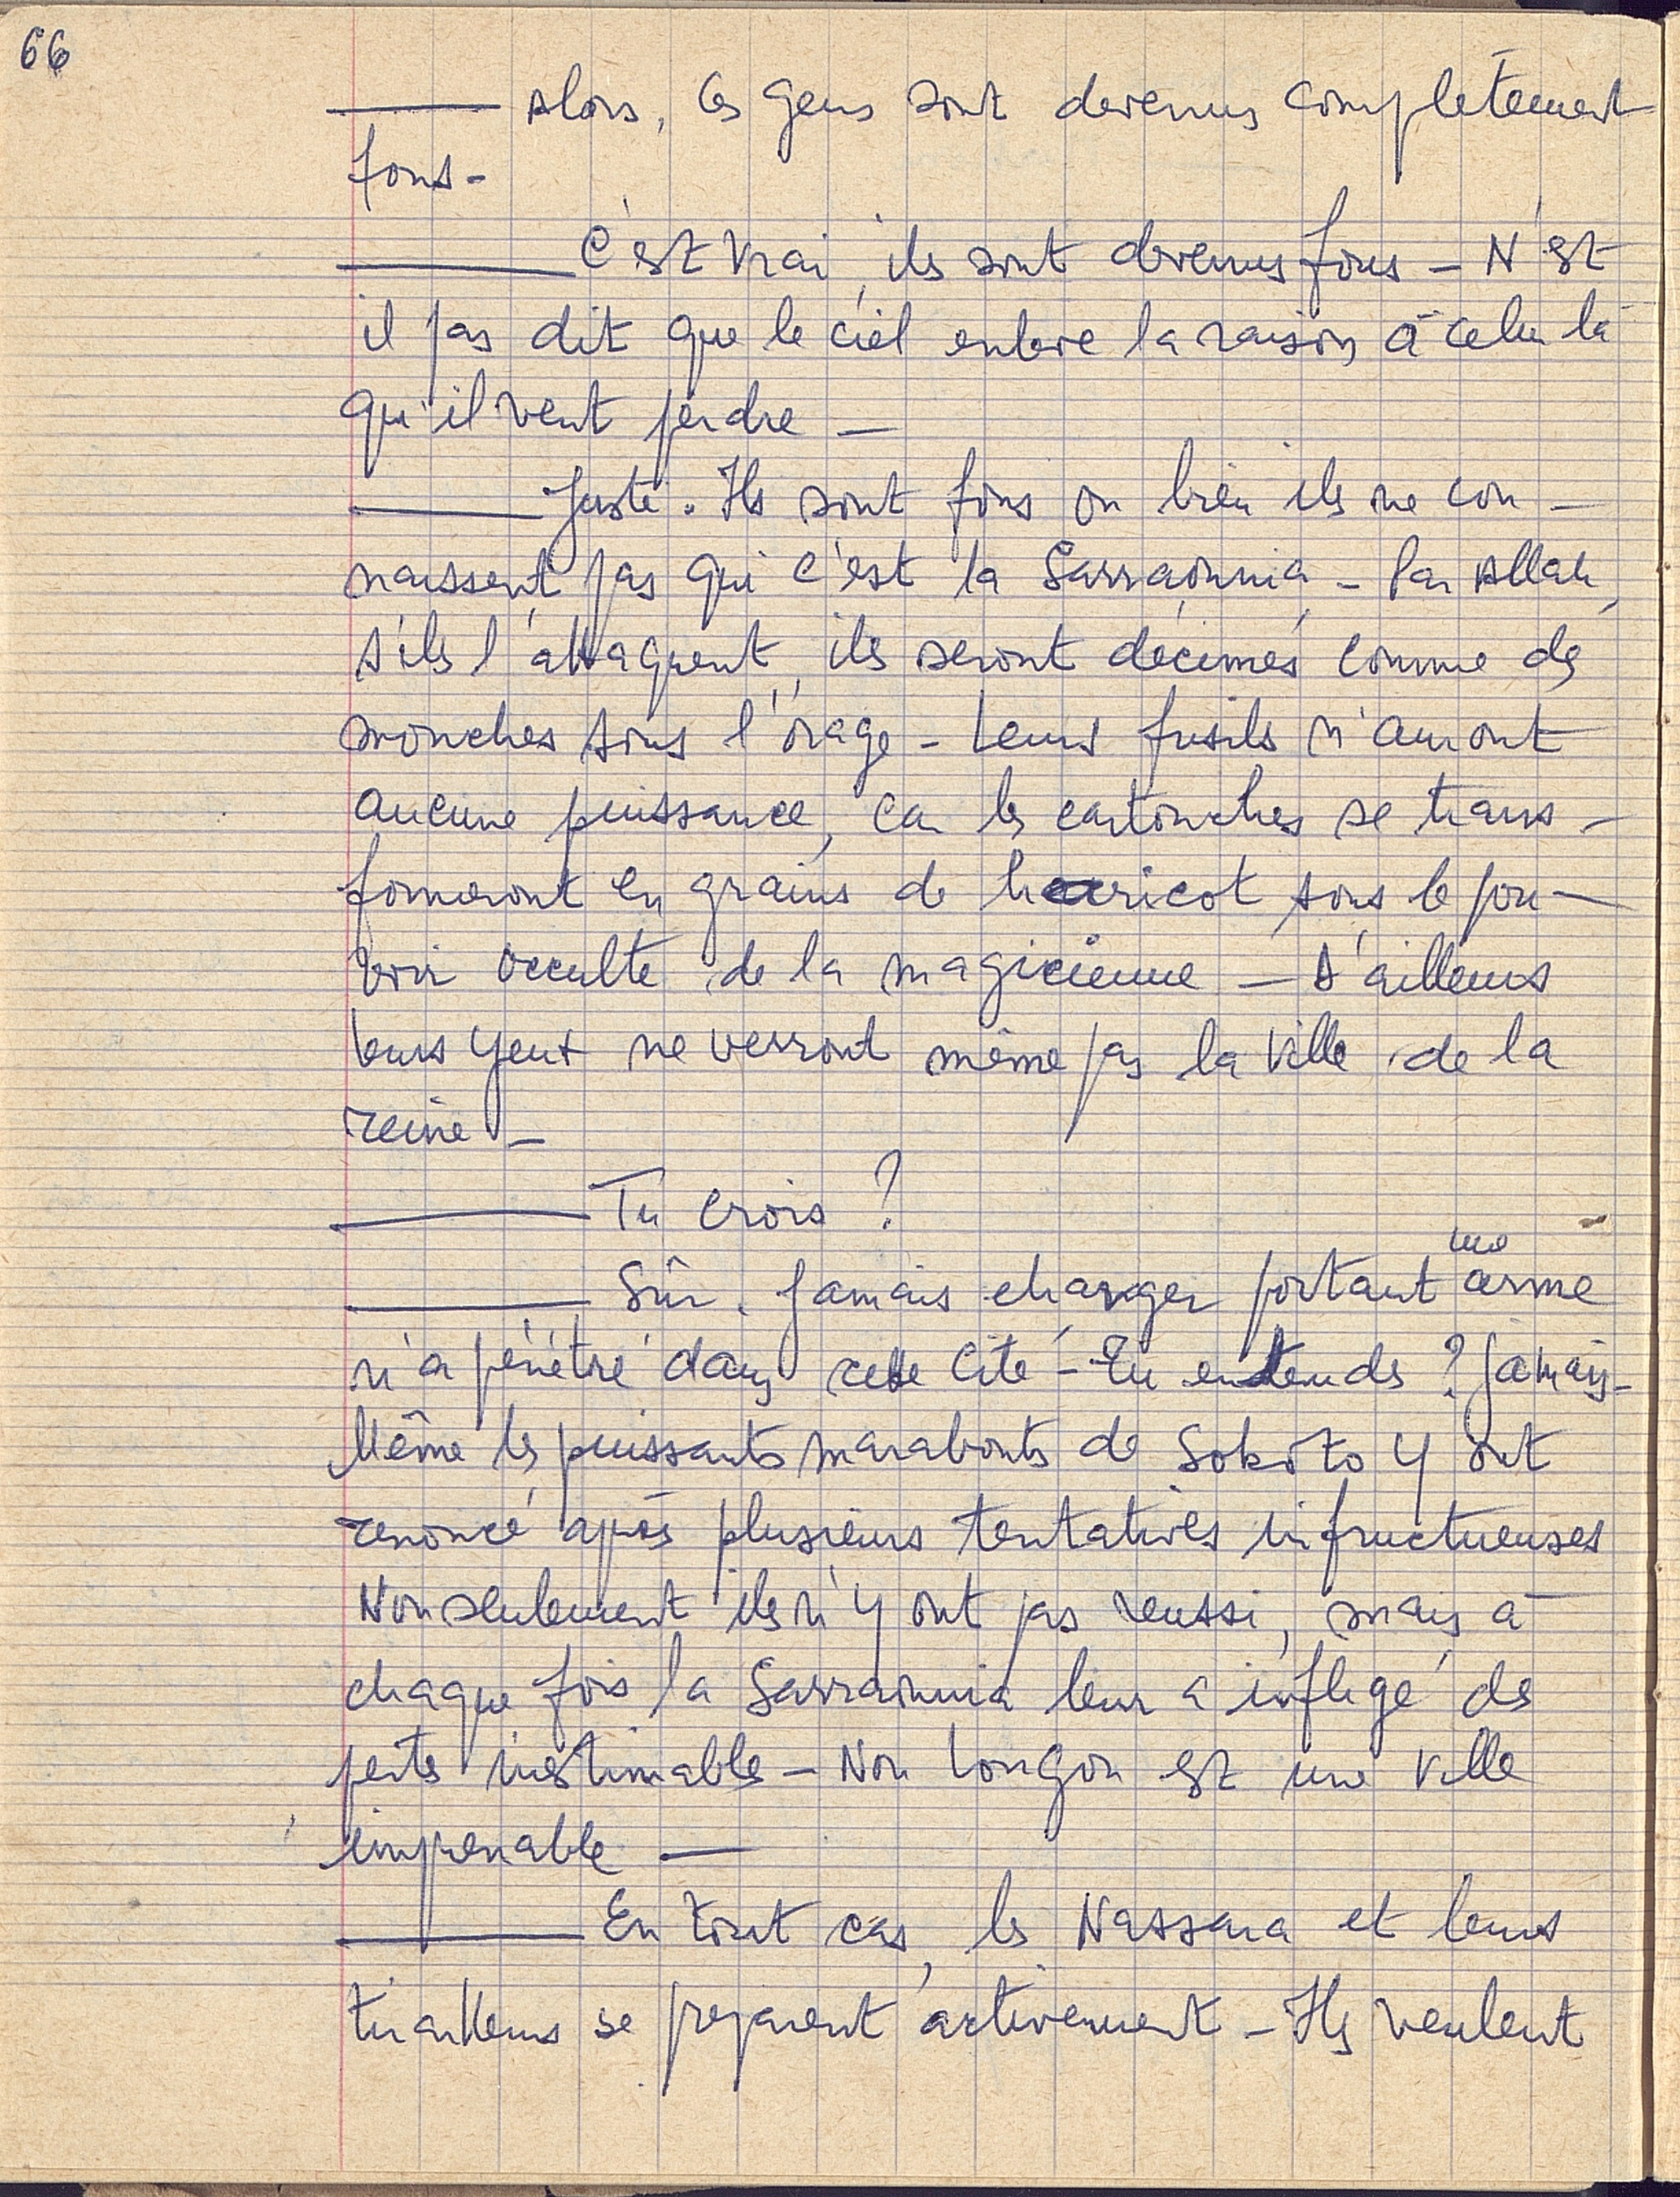 66
— Alors, les gens sont devenus complètement
fous -
— C'est vrai, ils sont devenus fous - N'est
il pas dit que le ciel enlève la raison à celui là
qu'il veut perdre -
— Juste. Ils sont fous ou bien ils ne con -
naissent pas qui c'est la Sarraounia - Par Allah,
s'ils l'attaquent, ils seront décimés comme des
mouches sous l'orage - Leurs fusils n'auront
aucune puissance, car les cartouches se trans -
formeront en grains de haricot, sous le pou -
voir occulte de la magicienne - D'ailleurs
leurs yeux ne verront même pas la ville de la
reine -
— Tu crois ?
— Sûr. Jamais étranger portant une arme
n'a pénétré dans cette cité - Tu entends ? Jamais -
Même les puissants marabouts de Sokoto y ont
renoncé après plusieurs tentatives infructueuses
Non seulement ils n'y ont pas réussi, mais à
chaque fois la Sarraounia leur a infligé des
pertes inestimables - Non Lougou est une ville
imprenable -
— En tout cas, les Nassara et leurs
tirailleurs se préparent activement - Ils veulent